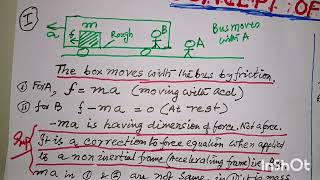 CEPT OF
I
a
m
Rough
B
A
Bus moves
with A
The box moves with the bus by friction
(i) For A, f = ma (moving with accl)
(ii) for B f - ma = 0 (At rest)
-ma is having dimension of force. Not a force.
Imp
It is a correction to force equation when applied
to a non inertial frame (Accelerating frame)
ma in ① & ② are not same. in ① it is mass
InShot